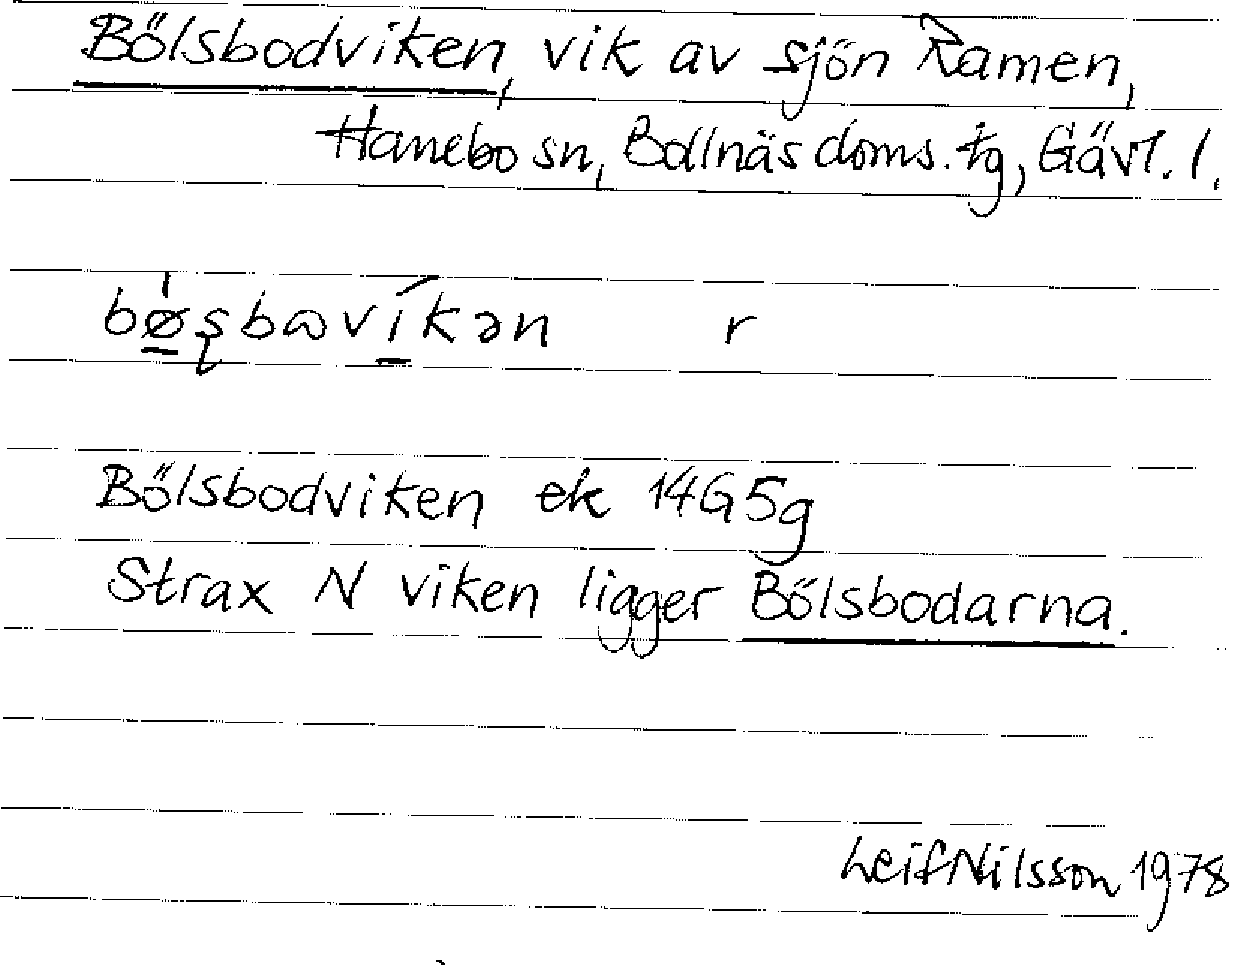 Bölsbodviken, vik av sjön Ramen,
Hanebo sn, Bollnäs doms. tg, Gävl. l.
bǿ̱ʂbɷví̱kən r
Bölsbodviken ek 14G5g
Strax N viken ligger Bölsbodarna.
Leif Nilsson 1978